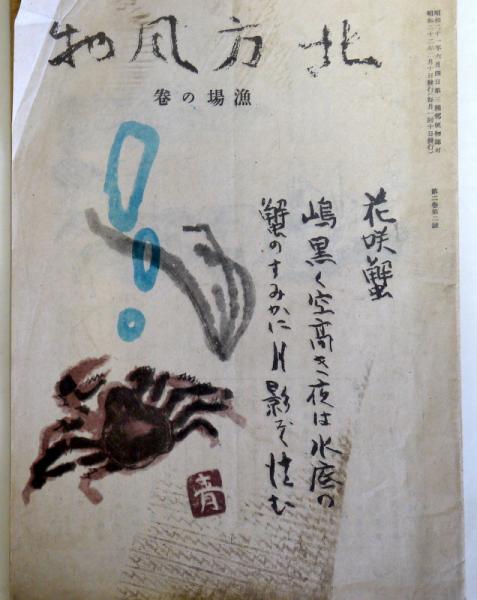 北方風物
漁場の卷
昭和二十一年六月四日第三種郵便物認可
昭和二十二年 月十日發行(毎月一回十日發行)
第二卷第二號
花咲蟹
嶋黒く空高き夜は水底の
蟹のすみかに月影ぞ
青